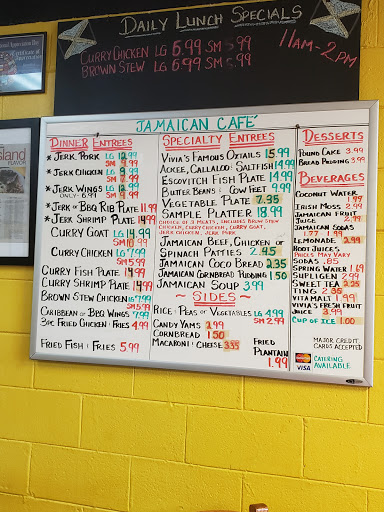 Daily Lunch Specials
Curry Chicken LG 6.99 SM 5.99
Brown Stew LG 6.99 SM 5.99
11am-2pm
Jamaican Café
Dinner Entrees
* Jerk Pork LG 12.99
SM 9.99
* Jerk Chicken LG 9.99
SM 7.99
* Jerk Wings LG 12.99
only. 6.99 SM 9.99
* Jerk or BBQ Rib Plate 11.99
* Jerk Shrimp Plate 14.99
Curry Goat LG 14.99
SM 10.99
Curry Chicken LG 7.99
SM 5.99
Curry Fish Plate 14.99
Curry Shrimp Plate 14.99
Brown Stew Chicken LG 7.99
SM 5.99
Caribbean or BBQ Wings 7.99
3pc Fried Chicken: Fries 4.99
Fried Fish: Fries 5.99
Specialty Entrees
Vivia's Famous Oxtails 15.99
Ackee, Callaloo: Saltfish 14.99
Escovitch Fish Plate 14.99
Butter Beans: Cow Feet 9.99
Vegetable Plate 7.35
Sample Platter 18.99
Choice of 3 meats, includes Brown Stew
Chicken, Curry Chicken, Curry Goat,
Jerk Chicken, Jerk Pork
Jamaican Beef, Chicken or
Spinach Patties 2.45
Jamaican Coco Bread 2.35
Jamaican Cornbread Pudding 1.50
Jamaican Soup 3.99
~ Sides ~
Rice: Peas or Vegetables LG 4.99
SM 2.99
Candy Yams 2.99
Cornbread 1.50
Macaroni: Cheese 3.35
Fried
Plantain
1.99
Desserts
Pound Cake 3.99
Bread Pudding 3.99
Beverages
Coconut Water
1.99
Irish Moss 2.99
Jamaican Fruit
Juice 2.99
Jamaican Sodas
1.77 1.99
Lemonade 2.99
Root Juices
Prices May Vary
Sodas .85
Spring Water 1.69
Supligen 2.99
Sweet Tea 2.35
Ting 2.35
Vitamalt 1.99
Vivia's Fresh Fruit
Juice 3.99
Cup of Ice 1.00
Major Credit
Cards Accepted
VISA
Catering
Available
Island
Flavor